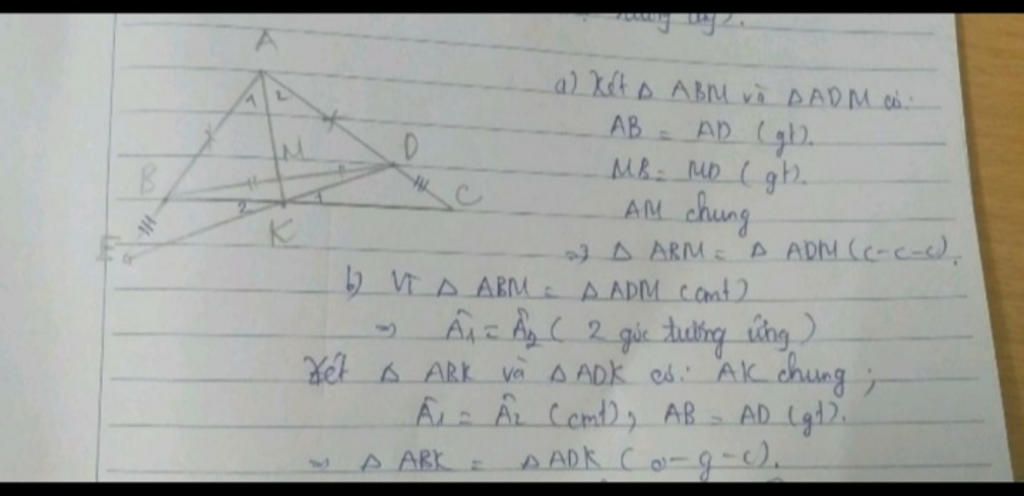 A
1 2
M
D
B
C
2 1
K
E
a) Xét Δ ABM và ΔADM có:
AB = AD (gt).
MB = MD (gt).
AM chung
=> Δ ABM = Δ ADM (c-c-c).
b) Vì Δ ABM = Δ ADM (cmt)
=> Â1 = Â2 ( 2 góc tương ứng )
Xét Δ ABK và ΔADK có: AK chung ;
Â1 = Â2 (cmt), AB = AD (gt).
=> Δ ABK = ΔADK (c-g-c).